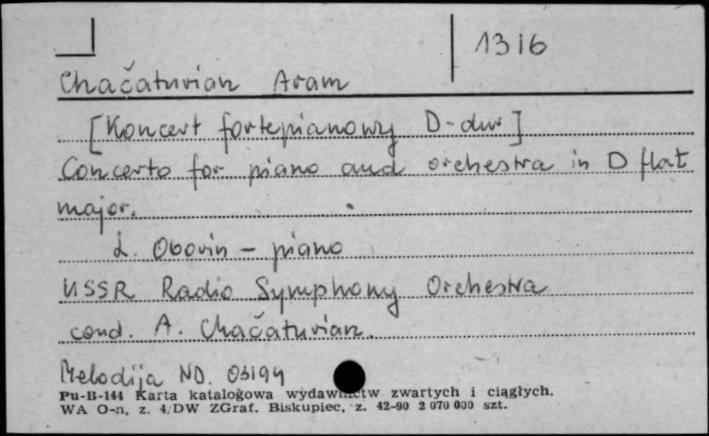 1316
Chačaturian Aram
[Koncert fortepianowy D-dur]
Concerto for piano and orchestra in D flat
major.
L. Oborin - piano
USSR Radio Symphony Orchestra
cond. A. Chačaturian.
Melodija ND. 03194
Pu-B-144 Karta katalogowa wydawnictw zwartych i ciągłych.
WA O-n, z. 4/DW ZGraf. Biskupiec, z. 42-90 2 070 000 szt.